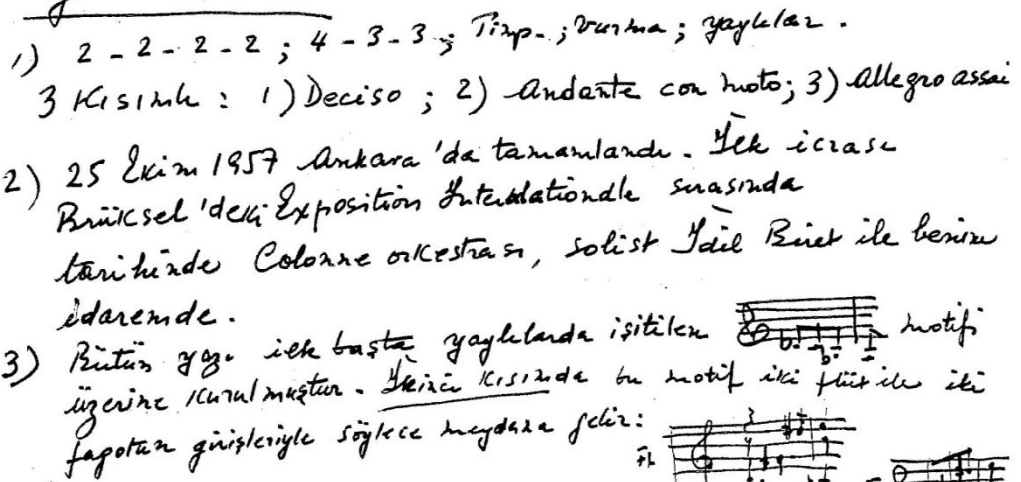 1) 2 - 2 - 2 - 2 ; 4 - 3 - 3 ; Timp. ; vurma ; yaylılar .
3 Kısımlı : 1) Deciso ; 2) Andante con moto; 3) Allegro assai
2) 25 Ekim 1957 Ankara 'da tamamlandı . İlk icrası
Brüksel 'deki Exposition Internationale sırasında
tarihinde Colonne orkestrası, solist İdil Biret ile benim
idaremde .
3) Bütün yazı ilk başta yaylılarda işitilen motifi
üzerine kurulmuştur . İkinci kısımda bu motif iki flüt ile iki
fagotun girişleriyle söylece meydana gelir :
Fl.
3